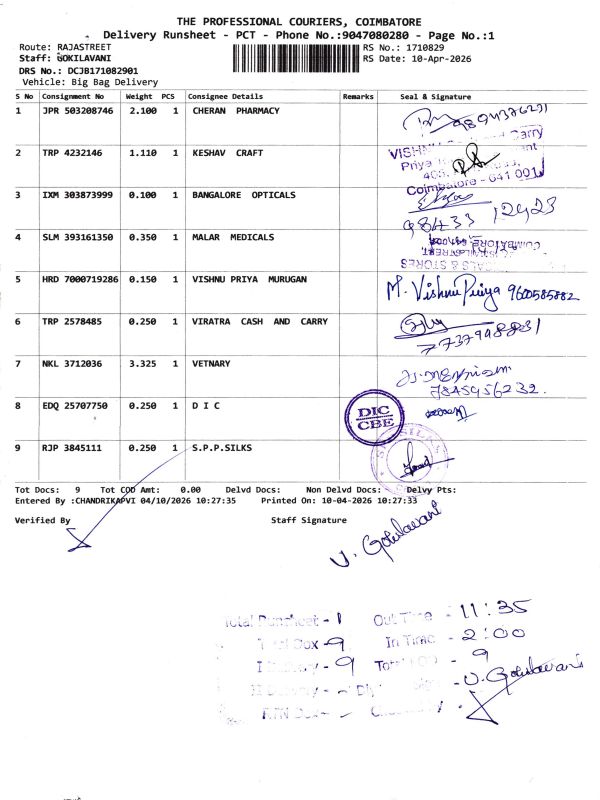 THE PROFESSIONAL COURIERS, COIMBATORE
Delivery Runsheet - PCT - Phone No.:9047080280 - Page No.:1
Route: RAJASTREET
RS No.: 1710829
Staff: GOKILAVANI
RS Date: 10-Apr-2026
DRS No.: DCJB171082901
Vehicle: Big Bag Delivery
S No Consignment No Weight PCS Consignee Details Remarks Seal & Signature
1 JPR 503208746 2.100 1 CHERAN PHARMACY
2 TRP 4232146 1.110 1 KESHAV CRAFT
Carry
VISHN
Priya
Coimbatore - 641 001
3 IXM 303873999 0.100 1 BANGALORE OPTICALS
98433 12423
4 SLM 393161350 0.350 1 MALAR MEDICALS
COIMBATORE
& STORES
5 HRD 7000719286 0.150 1 VISHNU PRIYA MURUGAN M. Vishnu Priya 9600585882
6 TRP 2578485 0.250 1 VIRATRA CASH AND CARRY
7 NKL 3712036 3.325 1 VETNARY
7845956232.
8 EDQ 25707750 0.250 1 D I C DIC CBE
9 RJP 3845111 0.250 1 S.P.P.SILKS
Tot Docs: 9 Tot COD Amt: 0.00 Delvd Docs: Non Delvd Docs: Delvy Pts:
Entered By :CHANDRIKAPVI 04/10/2026 10:27:35 Printed On: 10-04-2026 10:27:33
Verified By Staff Signature
V. Gokilavani
Total Runsheet - 1 Out Time - 11:35
Total Box - 9 In Time - 2:00
- 9 Total - 9
Sign - V. Gokilavani